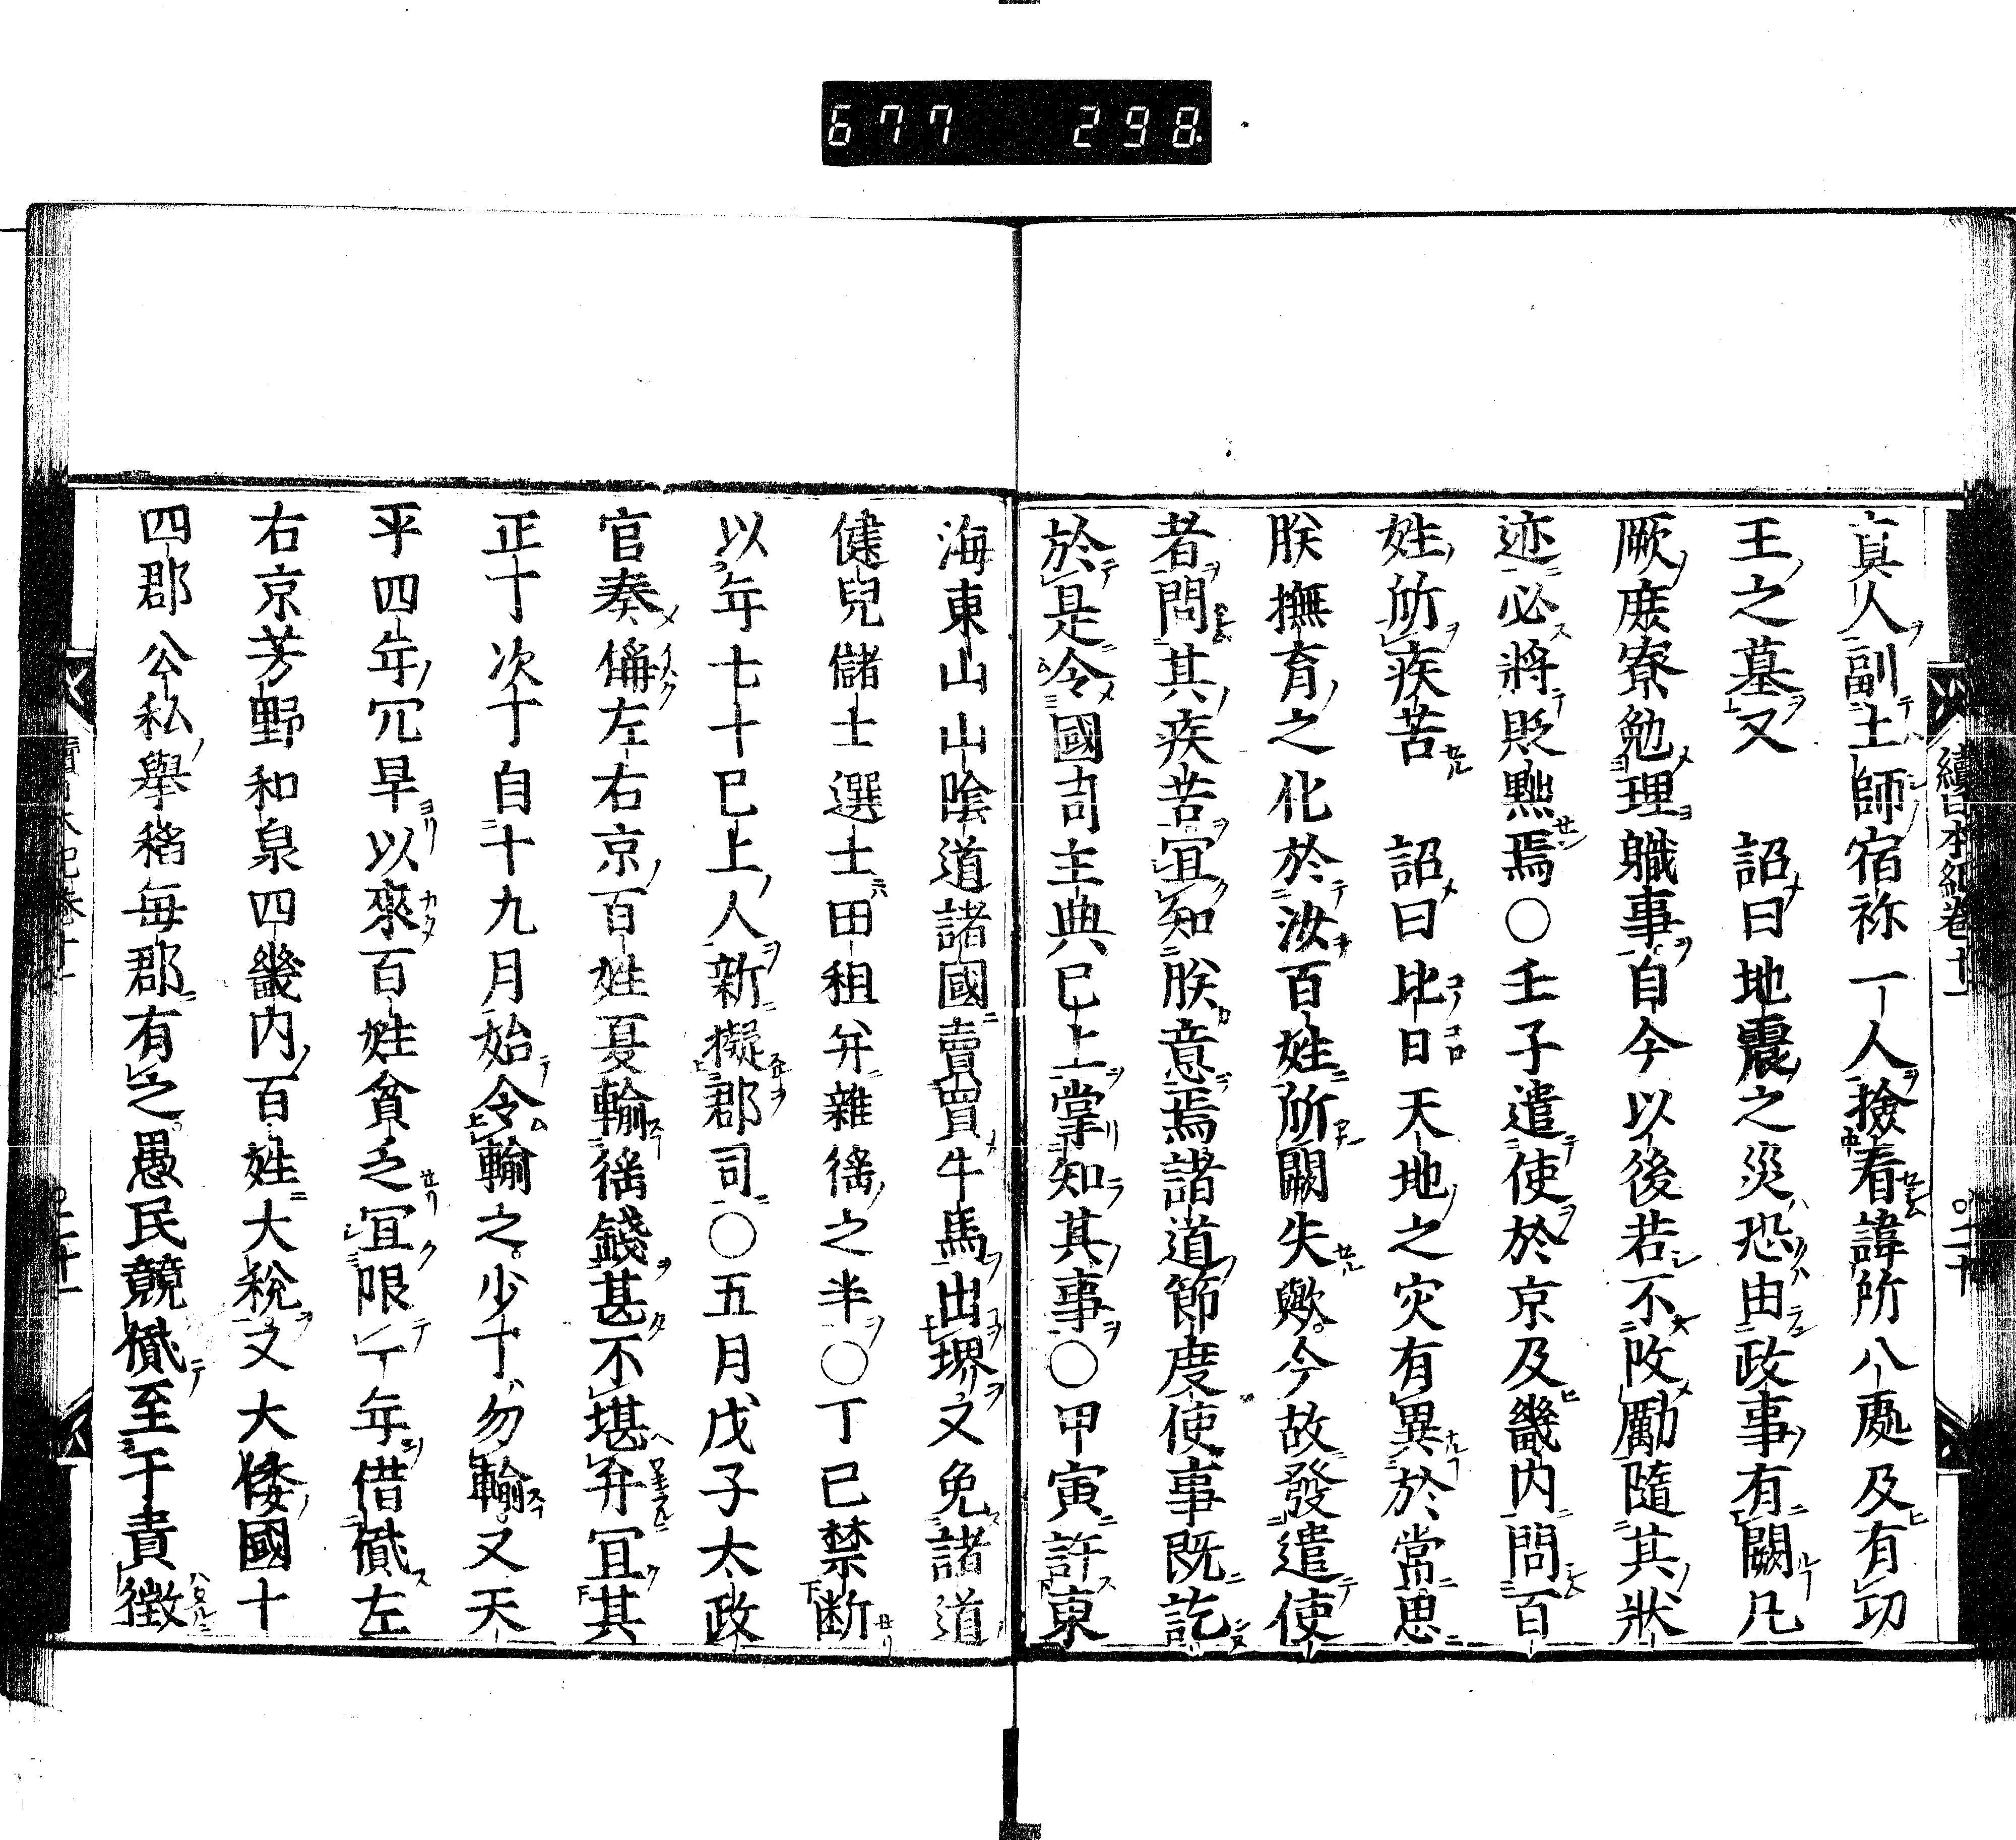 677 298
續日本紀卷十一
眞人副土師宿祢一人撿看諱所八處及有功
王之墓又 詔曰地震之災恐由政事有闕凡
厥庶寮勉理職事自今以後若不改勵隨其狀
迹必將貶黜焉○壬子遣使於京及畿内問百
姓所疾苦 詔曰比日天地之灾有異於常思
朕撫育之化於汝百姓所闕失歟今故發遣使
者問其疾苦宜知朕意焉諸道節度使事既訖
於是令國司主典已上掌知其事○甲寅許東
海東山山陰道諸國賣買牛馬出堺又免諸道
健兒儲士選士田租并雜徭之半○丁巳禁断
以年七十已上人新擬郡司○五月戊子太政
官奏偁左右京百姓夏輸徭錢甚不堪弁宜其
正丁次丁自十九月始令輸之少丁勿輸又天
平四年冗旱以來百姓貧乏宜限一年借貸左
右京芳野和泉四畿内百姓大税又大倭國十
四郡公私擧稲毎郡有之愚民競貸至于責徴